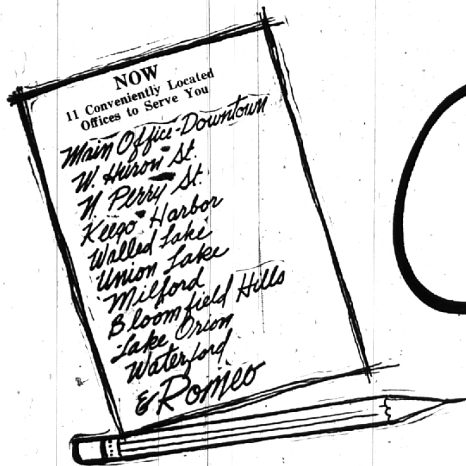 NOW
11 Conveniently Located
Offices to Serve You
Main Office-Downtown
W. Huron St.
N. Perry St.
Keego Harbor
Walled Lake
Union Lake
Milford
Bloomfield Hills
Lake Orion
Waterford
& Romeo